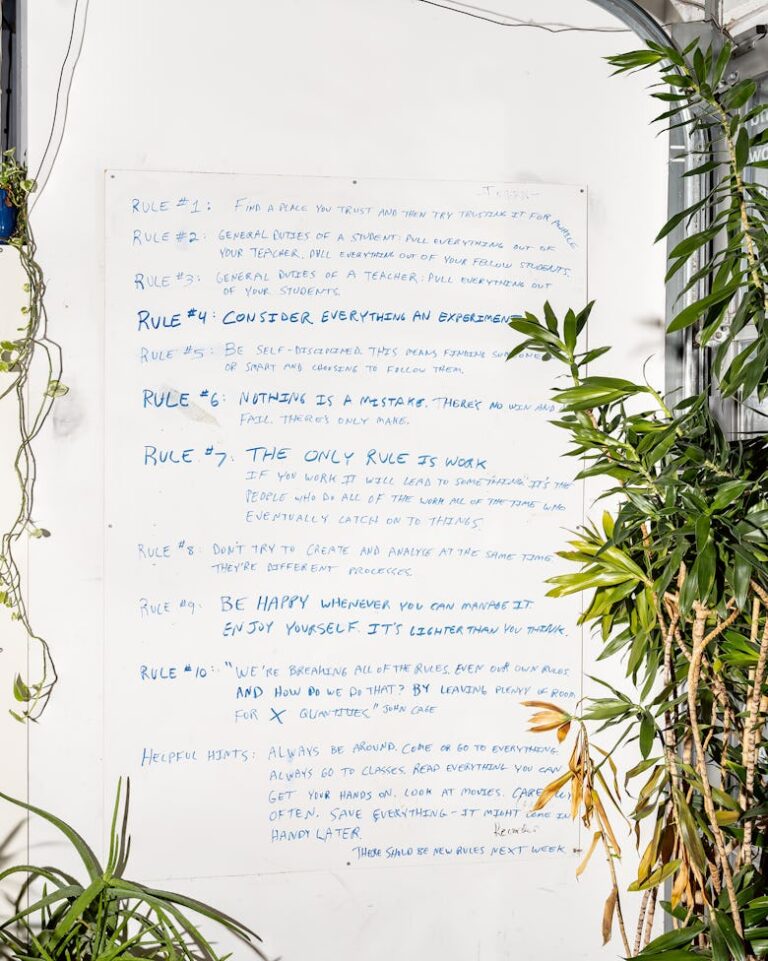 RULE #1: FIND A PLACE YOU TRUST AND THEN TRY TRUSTING IT FOR AWHILE
RULE #2: GENERAL DUTIES OF A STUDENT: PULL EVERYTHING OUT OF
YOUR TEACHER. PULL EVERYTHING OUT OF YOUR FELLOW STUDENTS.
RULE #3: GENERAL DUTIES OF A TEACHER: PULL EVERYTHING OUT
OF YOUR STUDENTS.
RULE #4: CONSIDER EVERYTHING AN EXPERIMENT
RULE #5: BE SELF-DISCIPLINED. THIS MEANS FINDING SOMEONE
OR SMART AND CHOOSING TO FOLLOW THEM.
RULE #6: NOTHING IS A MISTAKE. THERE'S NO WIN AND
FAIL. THERE'S ONLY MAKE.
RULE #7: THE ONLY RULE IS WORK
IF YOU WORK IT WILL LEAD TO SOMETHING. IT'S THE
PEOPLE WHO DO ALL OF THE WORK ALL OF THE TIME WHO
EVENTUALLY CATCH ON TO THINGS.
RULE #8: DON'T TRY TO CREATE AND ANALYSE AT THE SAME TIME.
THEY'RE DIFFERENT PROCESSES.
RULE #9: BE HAPPY WHENEVER YOU CAN MANAGE IT.
ENJOY YOURSELF. IT'S LIGHTER THAN YOU THINK.
RULE #10: "WE'RE BREAKING ALL OF THE RULES. EVEN OUR OWN RULES.
AND HOW DO WE DO THAT? BY LEAVING PLENTY OF ROOM
FOR X QUANTITIES." JOHN CAGE
HELPFUL HINTS: ALWAYS BE AROUND. COME OR GO TO EVERYTHING.
ALWAYS GO TO CLASSES. READ EVERYTHING YOU CAN
GET YOUR HANDS ON. LOOK AT MOVIES. CAREFULLY
OFTEN. SAVE EVERYTHING - IT MIGHT COME IN
HANDY LATER.
THERE SHOULD BE NEW RULES NEXT WEEK